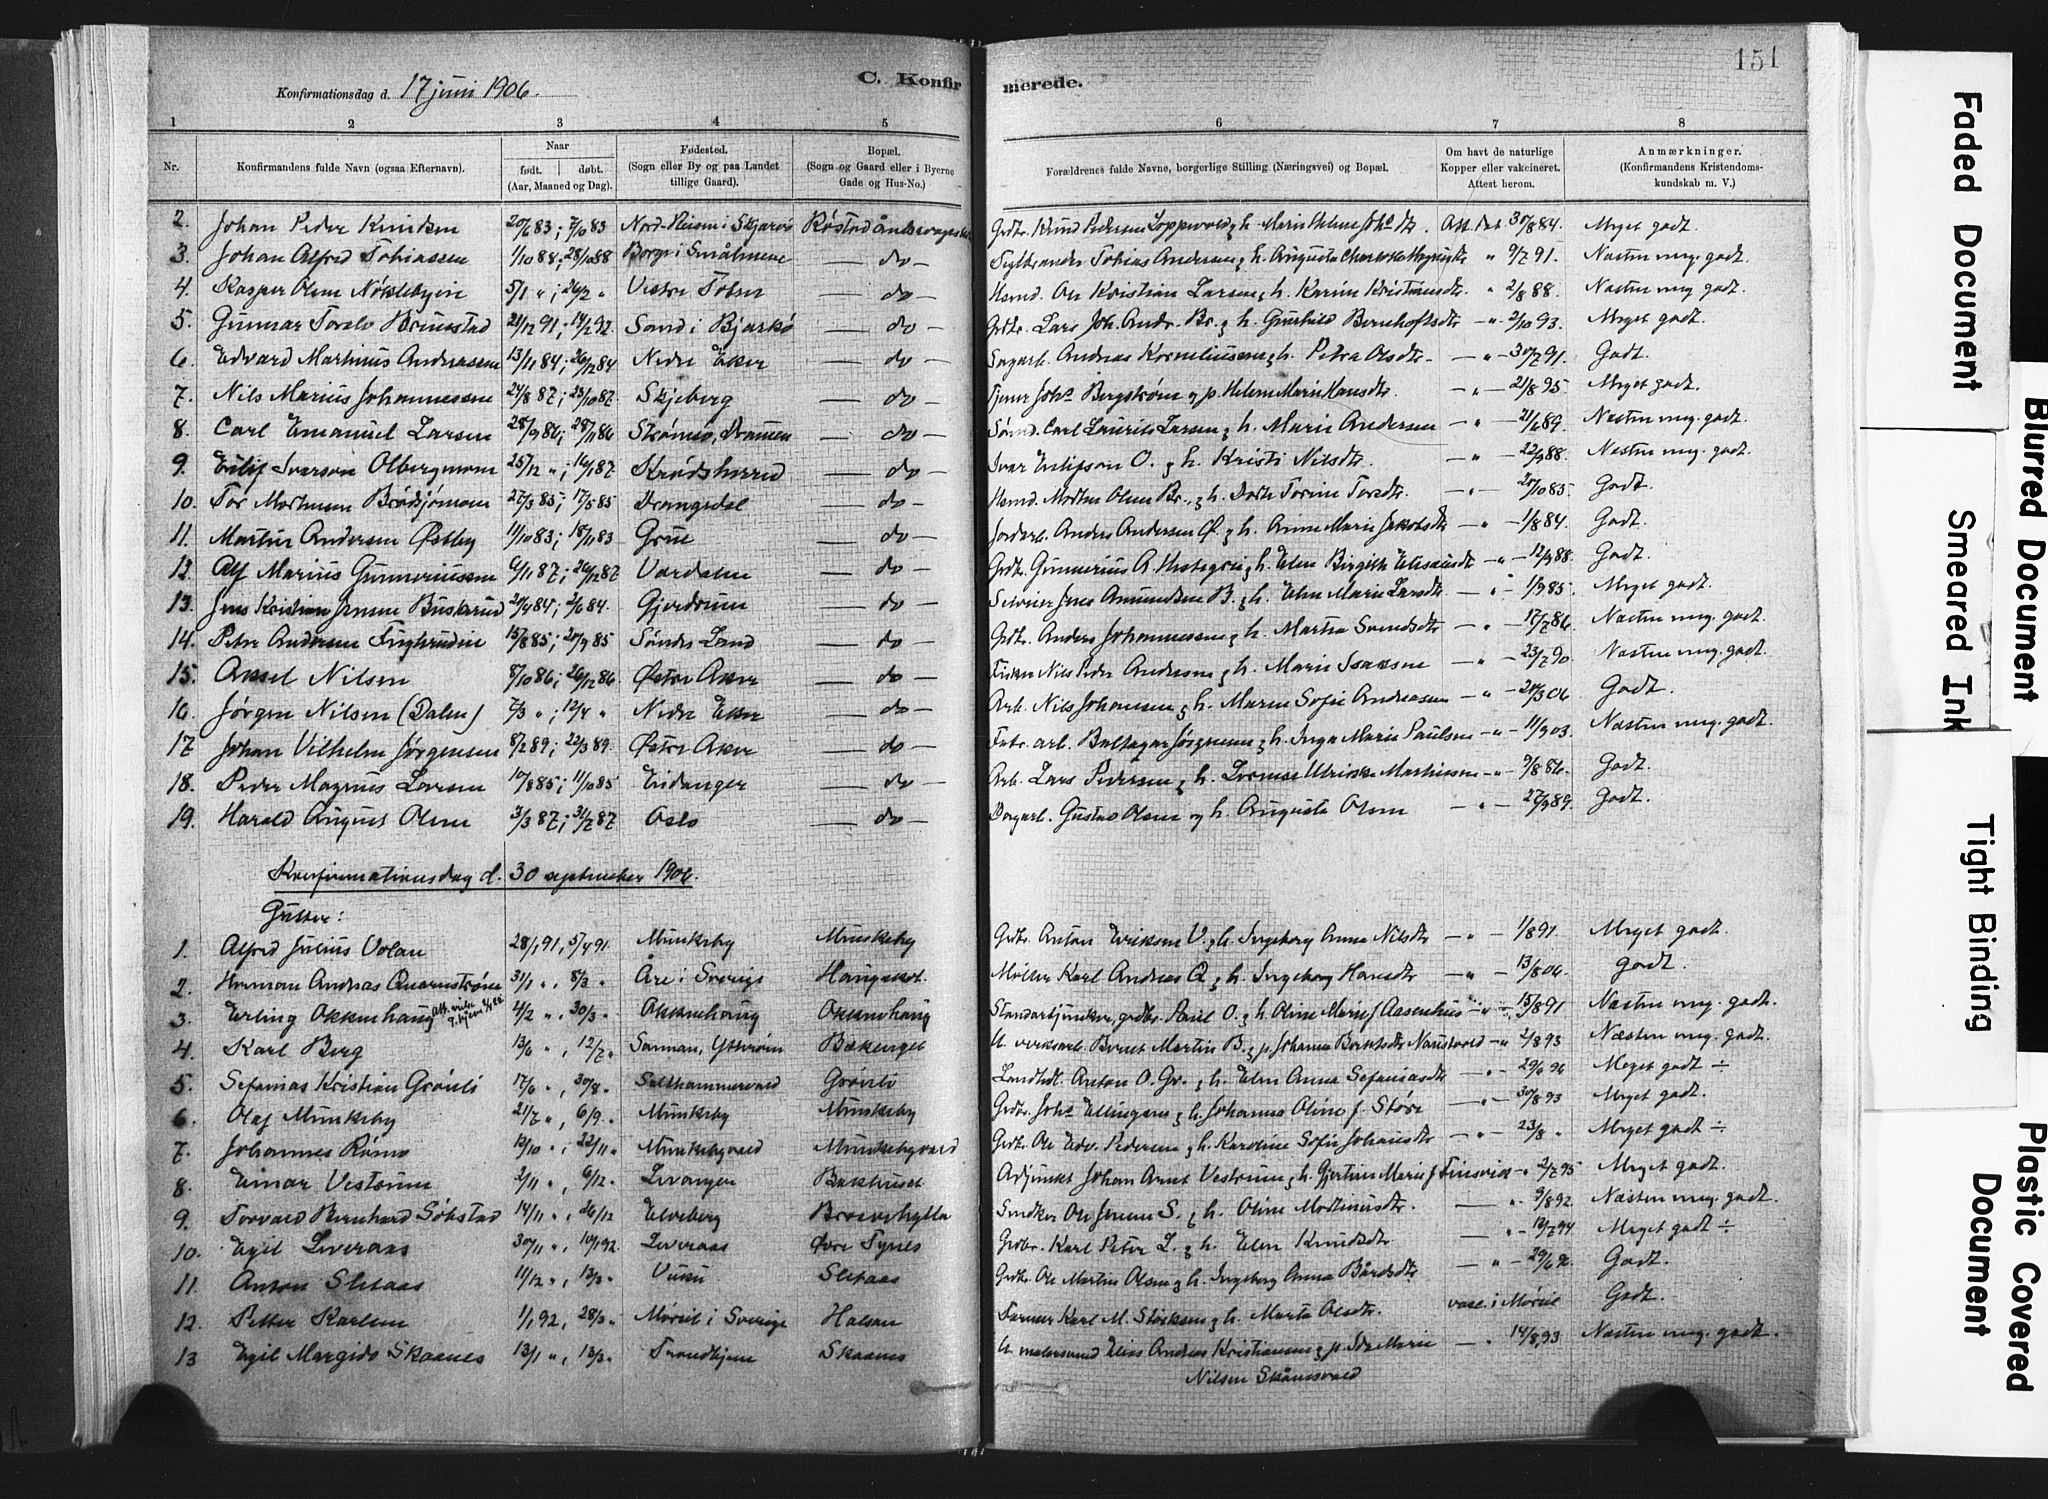 151
C. Konfirmerede.
Konfirmationsdag d. 17 juni 1906.
1 2 3 4 5 6 7 8
Nr. Konfirmandens fulde Navn (ogsaa Efternavn). Naar født. døbt. (Aar, Maaned og Dag). Fødested. (Sogn eller By og paa Landet tillige Gaard). Bopæl. (Sogn og Gaard eller i Byerne Gade og Hus-No.) Forældrenes fulde Navne, borgerlige Stilling (Næringsvei) og Bopæl. Om havt de naturlige Kopper eller vakcineret. Attest herom. Anmærkninger. (Konfirmandens Kristendomskundskab m. V.)
2. Johan Peder Knudsen 20/6 83; 7/10 83 i Skjærvø Røstad Grdbr. Knud Pedersen 30/8 84. Meget godt.
3. Johan Alfred Tobiassen 1/10 88; 28/10 88 Borge i Smålenene — do — Tobias Andersen & h. Augusta 9/7 91. Næsten meg. godt.
4. Kasper Olsen Nøklebyeie 5/1 " ; 26/2 " Vestre Toten — do — Ole Kristian Larsen & h. Karine Kristiansdtr. " 2/8 88. Næsten meg godt.
5. Gunnar Torolv Brunstad 21/12 91; 14/2 92. Sand i Bjarkø — do — Grdbr. Lars Joh. Andr. Br. & h. Gunhild Bernhoftsdtr — " — 2/10 93. Meget godt.
6. Edvard Martinus Andreassen 13/11 84; 26/12 84 Nedre Eker — do — Sagarb. Andreas Korneliussen & h. Petra Olsdtr. — " — 30/7 91. Godt.
7. Nils Marius Johannessen 24/8 87; 23/10 87. Skjeberg — do — Tjener Johs. Bergstrøm og p. Helene Marie Hansdtr. — " — 21/8 95. Meget godt.
8. Carl Emanuel Larsen 28/9 86; 28/11 86 Strømsø, Drammen — do — Carl Laurits Larsen & h. Marie Andersen — " — 21/6 89. Næsten meg. godt.
9. Eilif Iverson Olbergmoen 25/12 "; 16/1 87 Krødsherred — do — Ivar Eilifson O. & h. Kristi Nilsdtr. — " — 22/9 88. Næsten meg. godt.
10. Tor Mortensen 27/3 85; 17/5 85 Drangedal — do — Morten Olsen Br., & h. Dorte Torine Torsdtr. — " — 20/10 85. Godt.
11. Martin Andersen Østby 11/10 83; 18/11 83 Grue — do — Jordarb. Anders Andersen Ø. & h. Anne Marie Jakobsdtr — " — 1/8 84. Godt.
12. Alf Marius Gunneriussen 6/11 87; 26/12 87 Værdalen — do — Grdbr. Gunnerius A. & h. Elen Birgitte — " — 12/9 88. Godt.
13. Jens Kristian Jensen Busterud 20/4 84; 2/6 84. Gjerdrum — do — Selveier Jens Amundsen B. & h. Elen Marie Larsdtr — " — 1/9 85. Meget godt.
14. Peter Andersen 15/8 85; 20/9 85 Søndre Land — do — Grdbr. Anders Johannessen & h. Marthe Svendsdtr — " — 17/7 86. Næsten meg. godt.
15. Aksel Nilsen 8/10 86; 26/12 86. Østre Aker — do — Nils Peder Andersen & h. Marie Isaksen — " — 23/7 90. Næsten meg. godt.
16. Jørgen Nilsen (Dalen) 7/3 "; 12/4 " Nedre Eker — do — Arb. Nils Johansen & h. Maren Sofie Andreasen — " — 20/3 06. Godt.
17. Johan Vilhelm Jørgensen 8/2 89; 22/3 89. Østre Aker — do — Fabr. arb. Baltazar Jørgensen & h. Inga Marie Paulsen — " — 11/9 03. Næsten meg. godt.
18. Peder Magnus Larsen 10/8 85; 11/10 85 Eidanger — do — Arb. Lars Pedersen & h. Lovise Ulrikke Mathisen — " — 9/8 86. Godt.
19. Harald August Olsen 3/3 87; 31/7 87 Oslo — do — Dagarb. Gustav Olsen og h. Augusta Olsen — " — 27/9 89. Godt.
Konfirmationsdag d. 30 september 1906.
Gutter:
1. Alfred Julius Volan 28/1 91, 5/4 91. Munkeby Munkeby Grdbr. Anton Eriksen V. & h. Ingeborg Anna Nilsdtr — " — 1/8 91. Meget godt.
2. Herman Andreas Quarnstrøm 31/1 ", 8/3 " Åre i Sverige Møller Karl Andreas Q & h. Ingeborg Hansdtr — " — 13/8 06. Godt.
3. Erling Okkenhaug 4/2 ", 30/3 " Okkenhaug Okkenhaug Standartjunker, grdbr. Paul O. & h. Oline Marie f. Aasenhus — " — 15/8 91 Næsten meg. godt.
4. Karl Berg 13/6 ", 12/7 " Sannan, Ytterøen Bernt Martin B. & p. Johanna Naustvold — " 2/8 93 Næsten meg. godt.
5. Sefanias Kristian Grønli 17/6 ", 30/8 " Salthammervald Grønli Landhdl. Anton O. Gr. & h. Elen Anna Sefaniasdtr — " — 29/6 96 Meget godt ÷
6. Olaf Munkeby 21/7 ", 6/9 " Munkeby Munkeby Grdbr. Johs. Ellingsen & h. Johanna Oline f. Støre — " — 30/8 93 Meget godt.
7. Johannes Rømo 12/10 ", 22/11 " Munkebyvald Munkebyvald Grdbr. Ole Edv. Pedersen & h. Karoline Sofie Johansdtr — " — 23/8 " Meget godt ÷
8. Einar Vestrum 2/11 ", 6/12 " Levanger Bakhuset Adjunkt Johan Arnt Vestrum & h. Gjertine Marie f. Finsvik — " 2/7 95 Meget godt.
9. Torvald Bernhard Søkstad 14/11 ", 26/12 Elveberg Smedker Ole Jensen S. & h. Oline Mortinusdtr. — " 9/8 92. Næsten meg. godt.
10. Egil Leveraas 30/11 ", 10/1 92. Leveraas Øvre Tynes Grdbr. Karl Peter L. & h. Elen Knudsdtr — " — 12/7 94 Meget godt ÷
11. Anton Sletaas 11/12 ", 13/3 " Vuku Sletaas Grdbr. Ole Martin Olsen & h. Ingeborg Anna Bårdsdtr — " — 29/6 92. Godt.
12. Petter Karlsen 1/1 92, 28/3 " Mørsil i Sverige Halsan Karl M. & h. Marta Olsdtr. vacc. i Mørsil Godt.
13 Egil Margido Skaanes 13/1 ", 13/3 " Trondhjem Skaanes U. malersvend Elias Andreas Kristiansen & p. Ida Marie — " 14/8 93 Næsten meg. godt.
Nilsen Skånesvald
Faded Document
Smeared Ink
Tight Binding
Document
Blurred Document
Plastic Covered